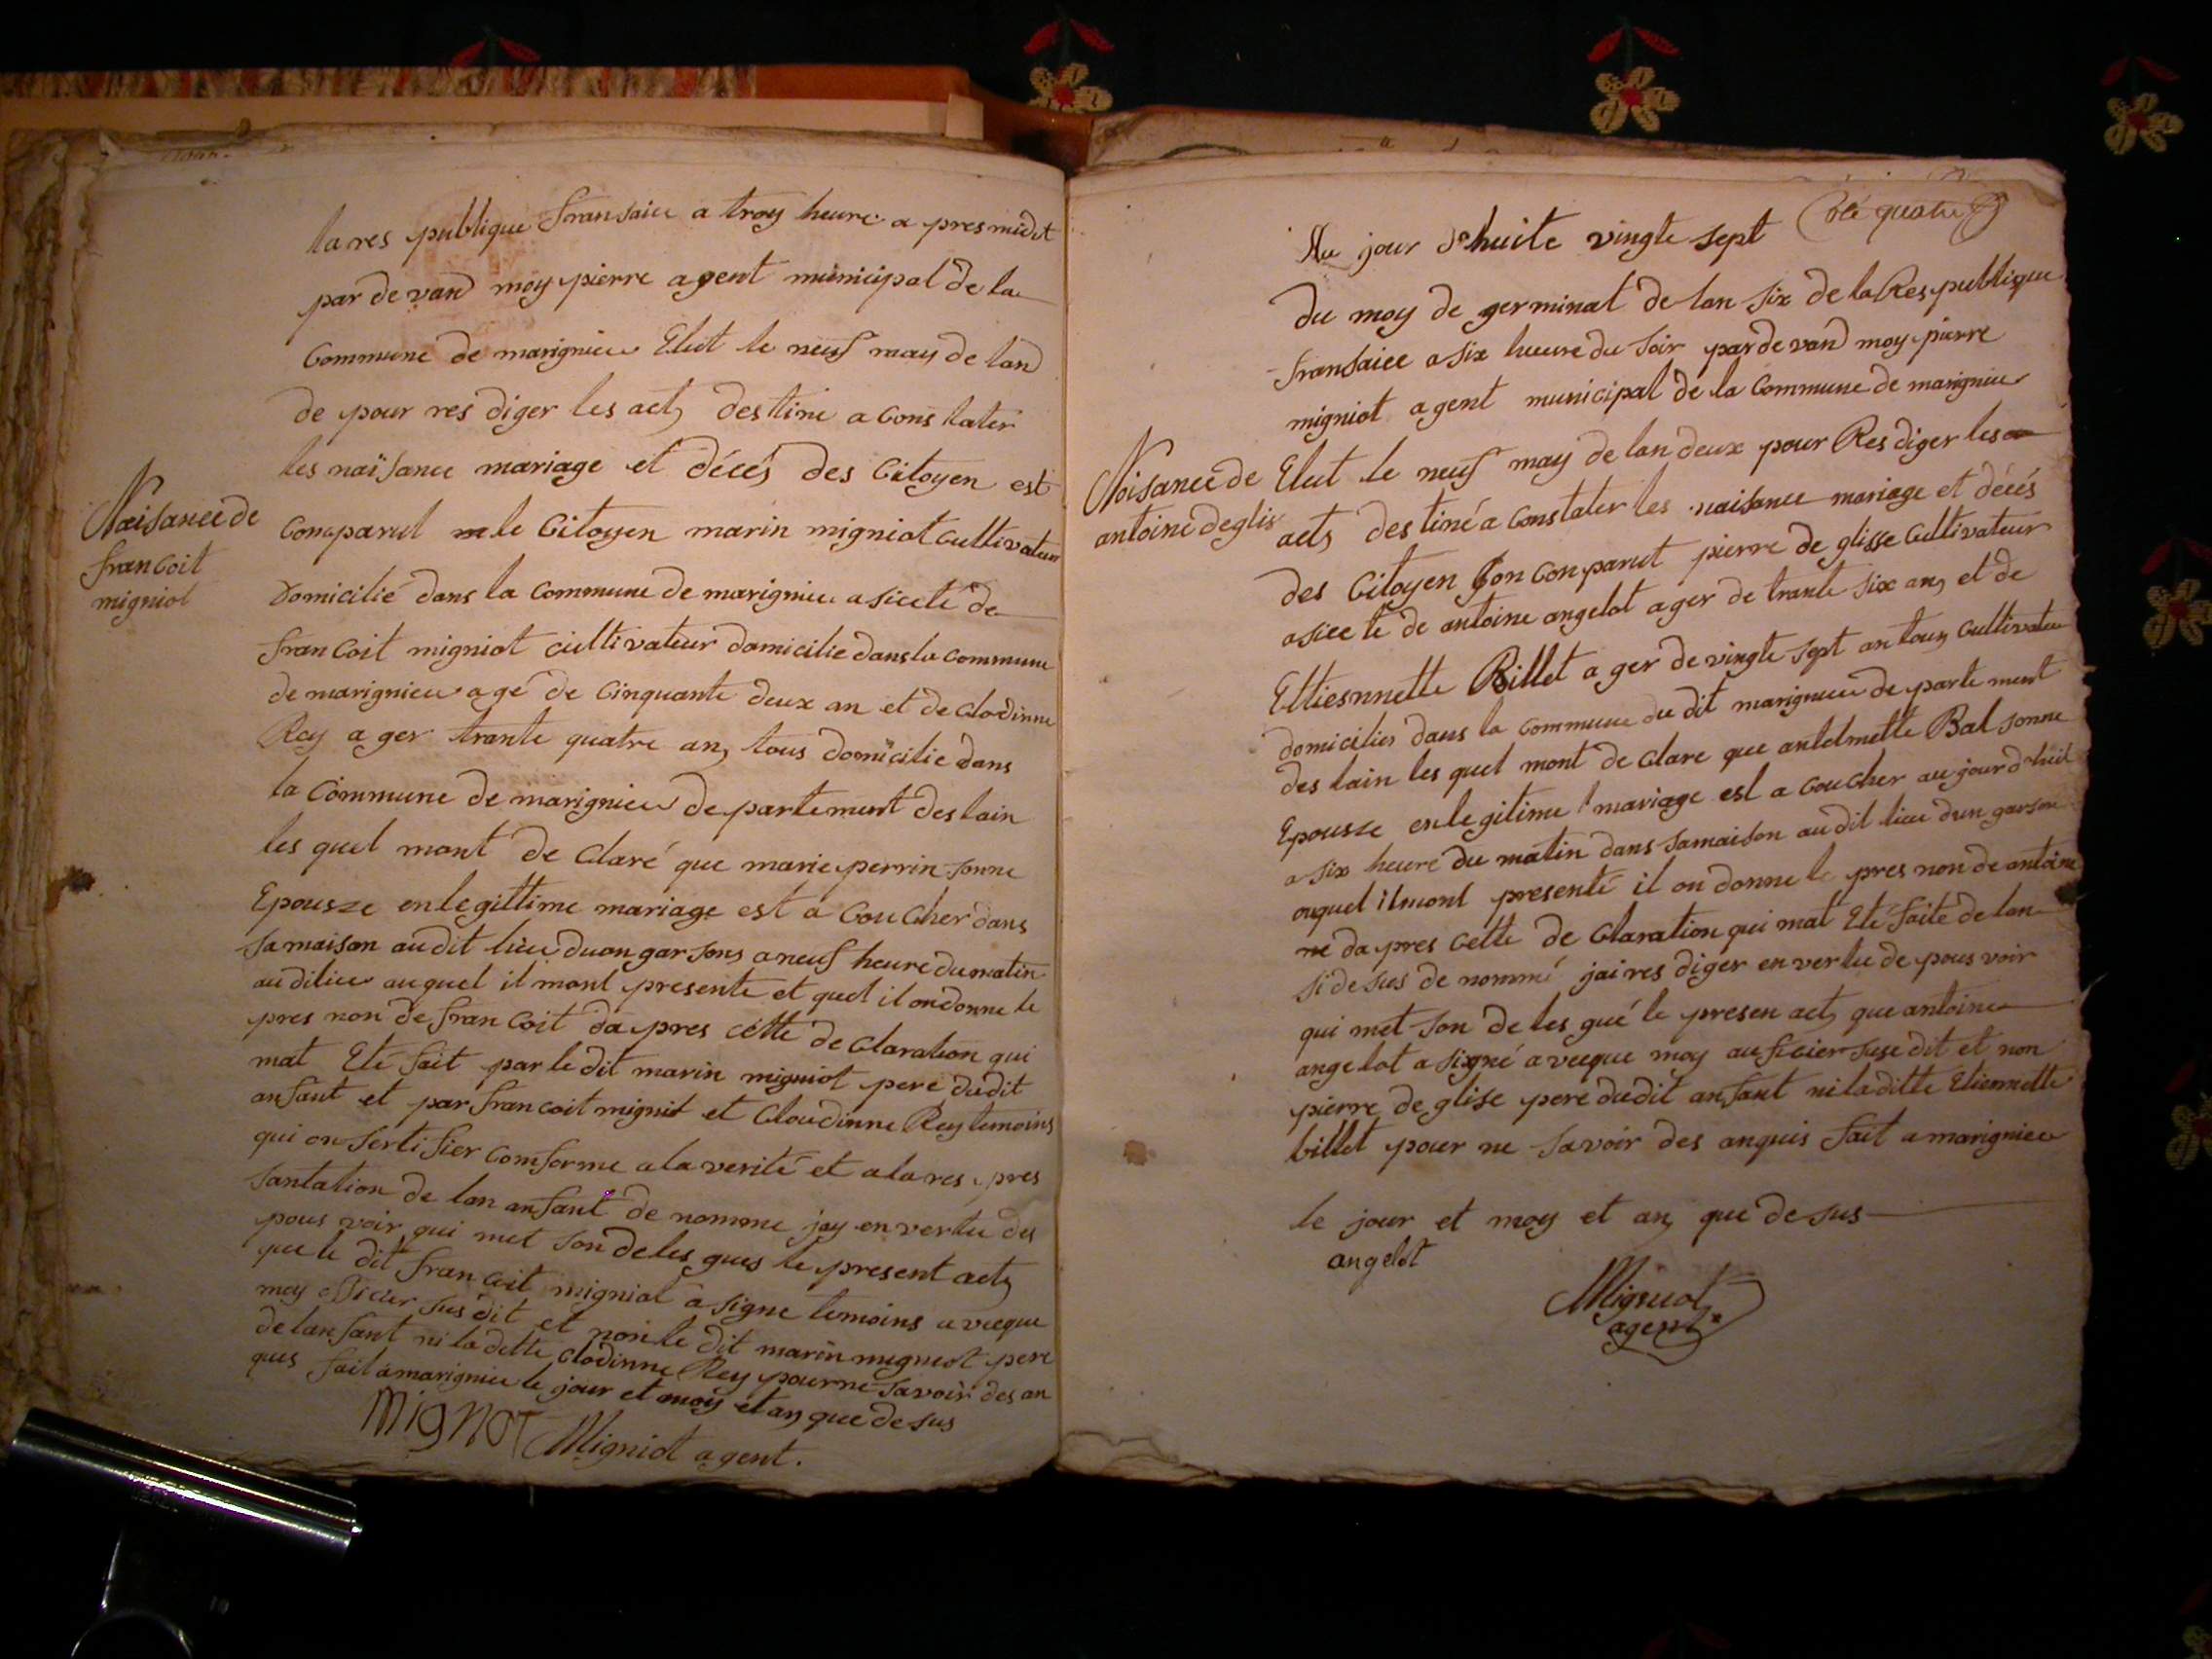 la res publique fransaice a troy heure a pres midit
par de vand moy pierre agent municipal de la
Commune de marignieu Elut le neuf may de lan
de pour res diger les act destine a Constater
les naïsance mariage et décés des Citoyen est
Conparut le Citoyen marin migniot Cultivateur
Naisance de
francoit
migniot
Domicilié dans la Commune de marignieu asiceté de
francoit migniot cultivateur domicilie dans la commune
de marignieu agé de Cinquante deux an et de Clodinne
Rey ager trante quatre an tous domicilie dans
la Commune de marignieu departement des lain
les quel mont de Claré que marie perrin sonne
Epousze en legittime mariage est a Coucher dans
sa maison au dit lieu duon garsons a neuf heure du matin
au dilieu auquel il mont presente et quel il on donne le
pres non de francoit da pres cette de Claration qui
mat Eté fait par le dit marin migniot pere dudit
anfant et par francoit mignit et Cloudinne Rey temoins
qui on sertifier Comforme a la verité et a la res pres
santation de lan anfant de nomme jay en vertu des
pous voir qui met son deles gues le present act
que le dit francoit migniot a signe temoins a vecque
moy officier sus dit et non le dit marin migniot pere
de lanfant ni la ditte Clodinne Rey pour ne savoir des an
ques fait a marignieu le jour et moy et an que de sus
MigNoT Migniot agent.
Coté quatre
Au jour dhuite vingte sept
du moy de germinat de lan six de la Respublique
fransaice a six heure du soir par de vand moy pierre
migniot agent municipal de la Commune de marignieu
Naisance de
antoine deglise
Elut le neuf may de lan deux pour Res diger les
act destiné a Constater les naisance mariage et décés
des Citoyen son Conparut pierre de glisse Cultivateur
asicete de antoine angelot ager de trante six an et de
Ettiesnnette Billet ager de vingte sept an tous Cultivateu
domicilies dans la Commune du dit marignieu de parte ment
des lain les quel mont de Clare que antelmette Bal sonne
Epousze en legitime mariage est a Coucher au jour dhuit
a six heure du matin dans sa maison au dit lieu dun garson
auquel il mont presenté il on donne le pres non de antoine
ne da pres cette de Claration qui mat Eté faite de lan
si de sus de nommé jai res diger en vertu de pous voir
qui met son deles gué le presen act que antoine
angelot a signé a vecque moy auficier suse dit et non
pierre de glise pere dudit anfant ni la ditte Etiennette
billet pour ne savoir des anquis fait a marignieu
le jour et moy et an que de sus
angelot
Migniot
agent